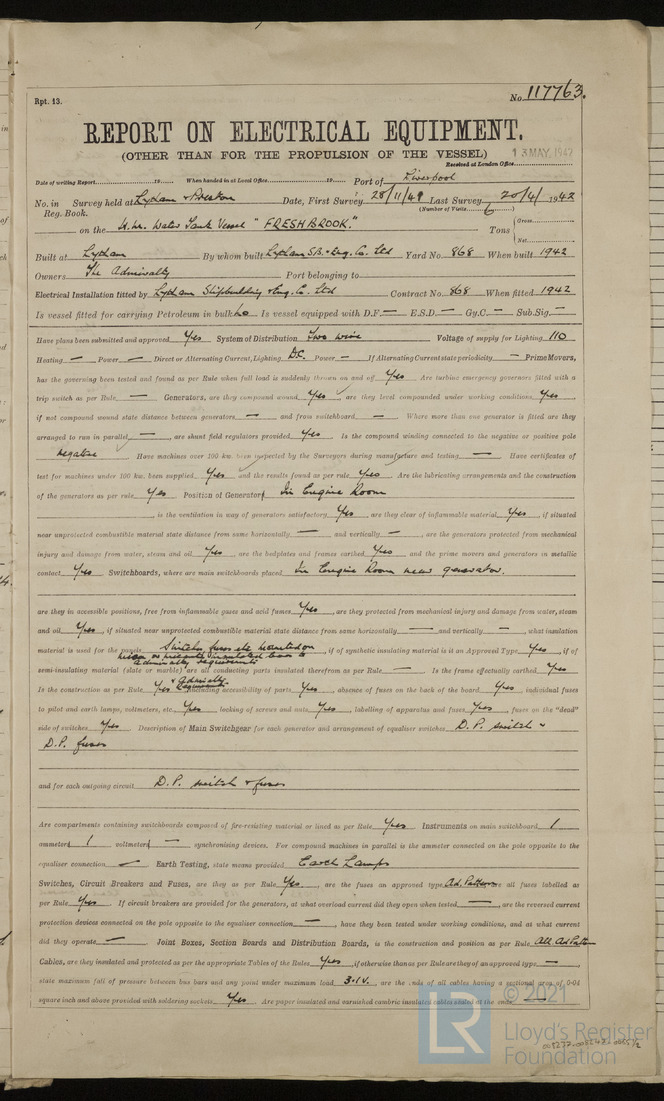 Rpt. 13.
No. 117763.
REPORT ON ELECTRICAL EQUIPMENT.
(OTHER THAN FOR THE PROPULSION OF THE VESSEL)
13 MAY. 1942
Received at London Office
Date of writing Report 19 When handed in at Local Office 19 Port of Liverpool
No. in Survey held at Lytham & Preston Date, First Survey 28/11/41 Last Survey 20/4/ 1942
Reg. Book. (Number of Visits 6)
on the Water Tank Vessel "FRESHBROOK." Tons { Gross
Net
Built at Lytham By whom built Lytham S.B. & Eng. Co. Ltd Yard No. 868 When built 1942
Owners The Admiralty Port belonging to
Electrical Installation fitted by Lytham Shipbuilding & Eng. Co. Ltd Contract No. 868 When fitted 1942
Is vessel fitted for carrying Petroleum in bulk No Is vessel equipped with D.F. — E.S.D. — Gy.C. — Sub.Sig. —
Have plans been submitted and approved Yes System of Distribution Two wire Voltage of supply for Lighting 110
Heating — Power — Direct or Alternating Current, Lighting D.C. Power — If Alternating Current state periodicity — Prime Movers,
has the governing been tested and found as per Rule when full load is suddenly thrown on and off Yes Are turbine emergency governors fitted with a
trip switch as per Rule — Generators, are they compound wound Yes, are they level compounded under working conditions Yes,
if not compound wound state distance between generators — and from switchboard — Where more than one generator is fitted are they
arranged to run in parallel —, are shunt field regulators provided Yes Is the compound winding connected to the negative or positive pole
negative Have machines over 100 kw. been inspected by the Surveyors during manufacture and testing — Have certificates of
test for machines under 100 kw. been supplied Yes and the results found as per rule Yes Are the lubricating arrangements and the construction
of the generators as per rule Yes Position of Generators In Engine Room
, is the ventilation in way of generators satisfactory Yes, are they clear of inflammable material Yes, if situated
near unprotected combustible material state distance from same horizontally — and vertically —, are the generators protected from mechanical
injury and damage from water, steam and oil Yes, are the bedplates and frames earthed Yes and the prime movers and generators in metallic
contact Yes Switchboards, where are main switchboards placed In Engine Room near generator.
are they in accessible positions, free from inflammable gases and acid fumes Yes, are they protected from mechanical injury and damage from water, steam
and oil Yes, if situated near unprotected combustible material state distance from same horizontally — and vertically —, what insulation
material is used for the panels Switches, fuses etc mounted on insulated bars to Admiralty requirements, if of synthetic insulating material is it an Approved Type Yes, if of
semi-insulating material (slate or marble) are all conducting parts insulated therefrom as per Rule — Is the frame effectually earthed Yes
Is the construction as per Rule Yes & Admiralty, including accessibility of parts Yes, absence of fuses on the back of the board Yes, individual fuses
to pilot and earth lamps, voltmeters, etc. Yes, locking of screws and nuts Yes, labelling of apparatus and fuses Yes, fuses on the "dead"
side of switches Yes Description of Main Switchgear for each generator and arrangement of equaliser switches D.P. switch &
D.P. fuses
and for each outgoing circuit D.P. switch & fuses
Are compartments containing switchboards composed of fire-resisting material or lined as per Rule Yes Instruments on main switchboard 1
ammeters 1 voltmeters — synchronising devices. For compound machines in parallel is the ammeter connected on the pole opposite to the
equaliser connection — Earth Testing, state means provided Earth Lamps
Switches, Circuit Breakers and Fuses, are they as per Rule Yes, are the fuses an approved type Ad. Pattern, are all fuses labelled as
per Rule Yes If circuit breakers are provided for the generators, at what overload current did they open when tested —, are the reversed current
protection devices connected on the pole opposite to the equaliser connection —, have they been tested under working conditions, and at what current
did they operate — Joint Boxes, Section Boards and Distribution Boards, is the construction and position as per Rule All Ad Pattn
Cables, are they insulated and protected as per the appropriate Tables of the Rules Yes, if otherwise than as per Rule are they of an approved type —,
state maximum fall of pressure between bus bars and any point under maximum load 3.1V., are the ends of all cables having a sectional area of 0·04
square inch and above provided with soldering sockets Yes Are paper insulated and varnished cambric insulated cables sealed at the ends —
© 2021
LR
Lloyd's Register
Foundation